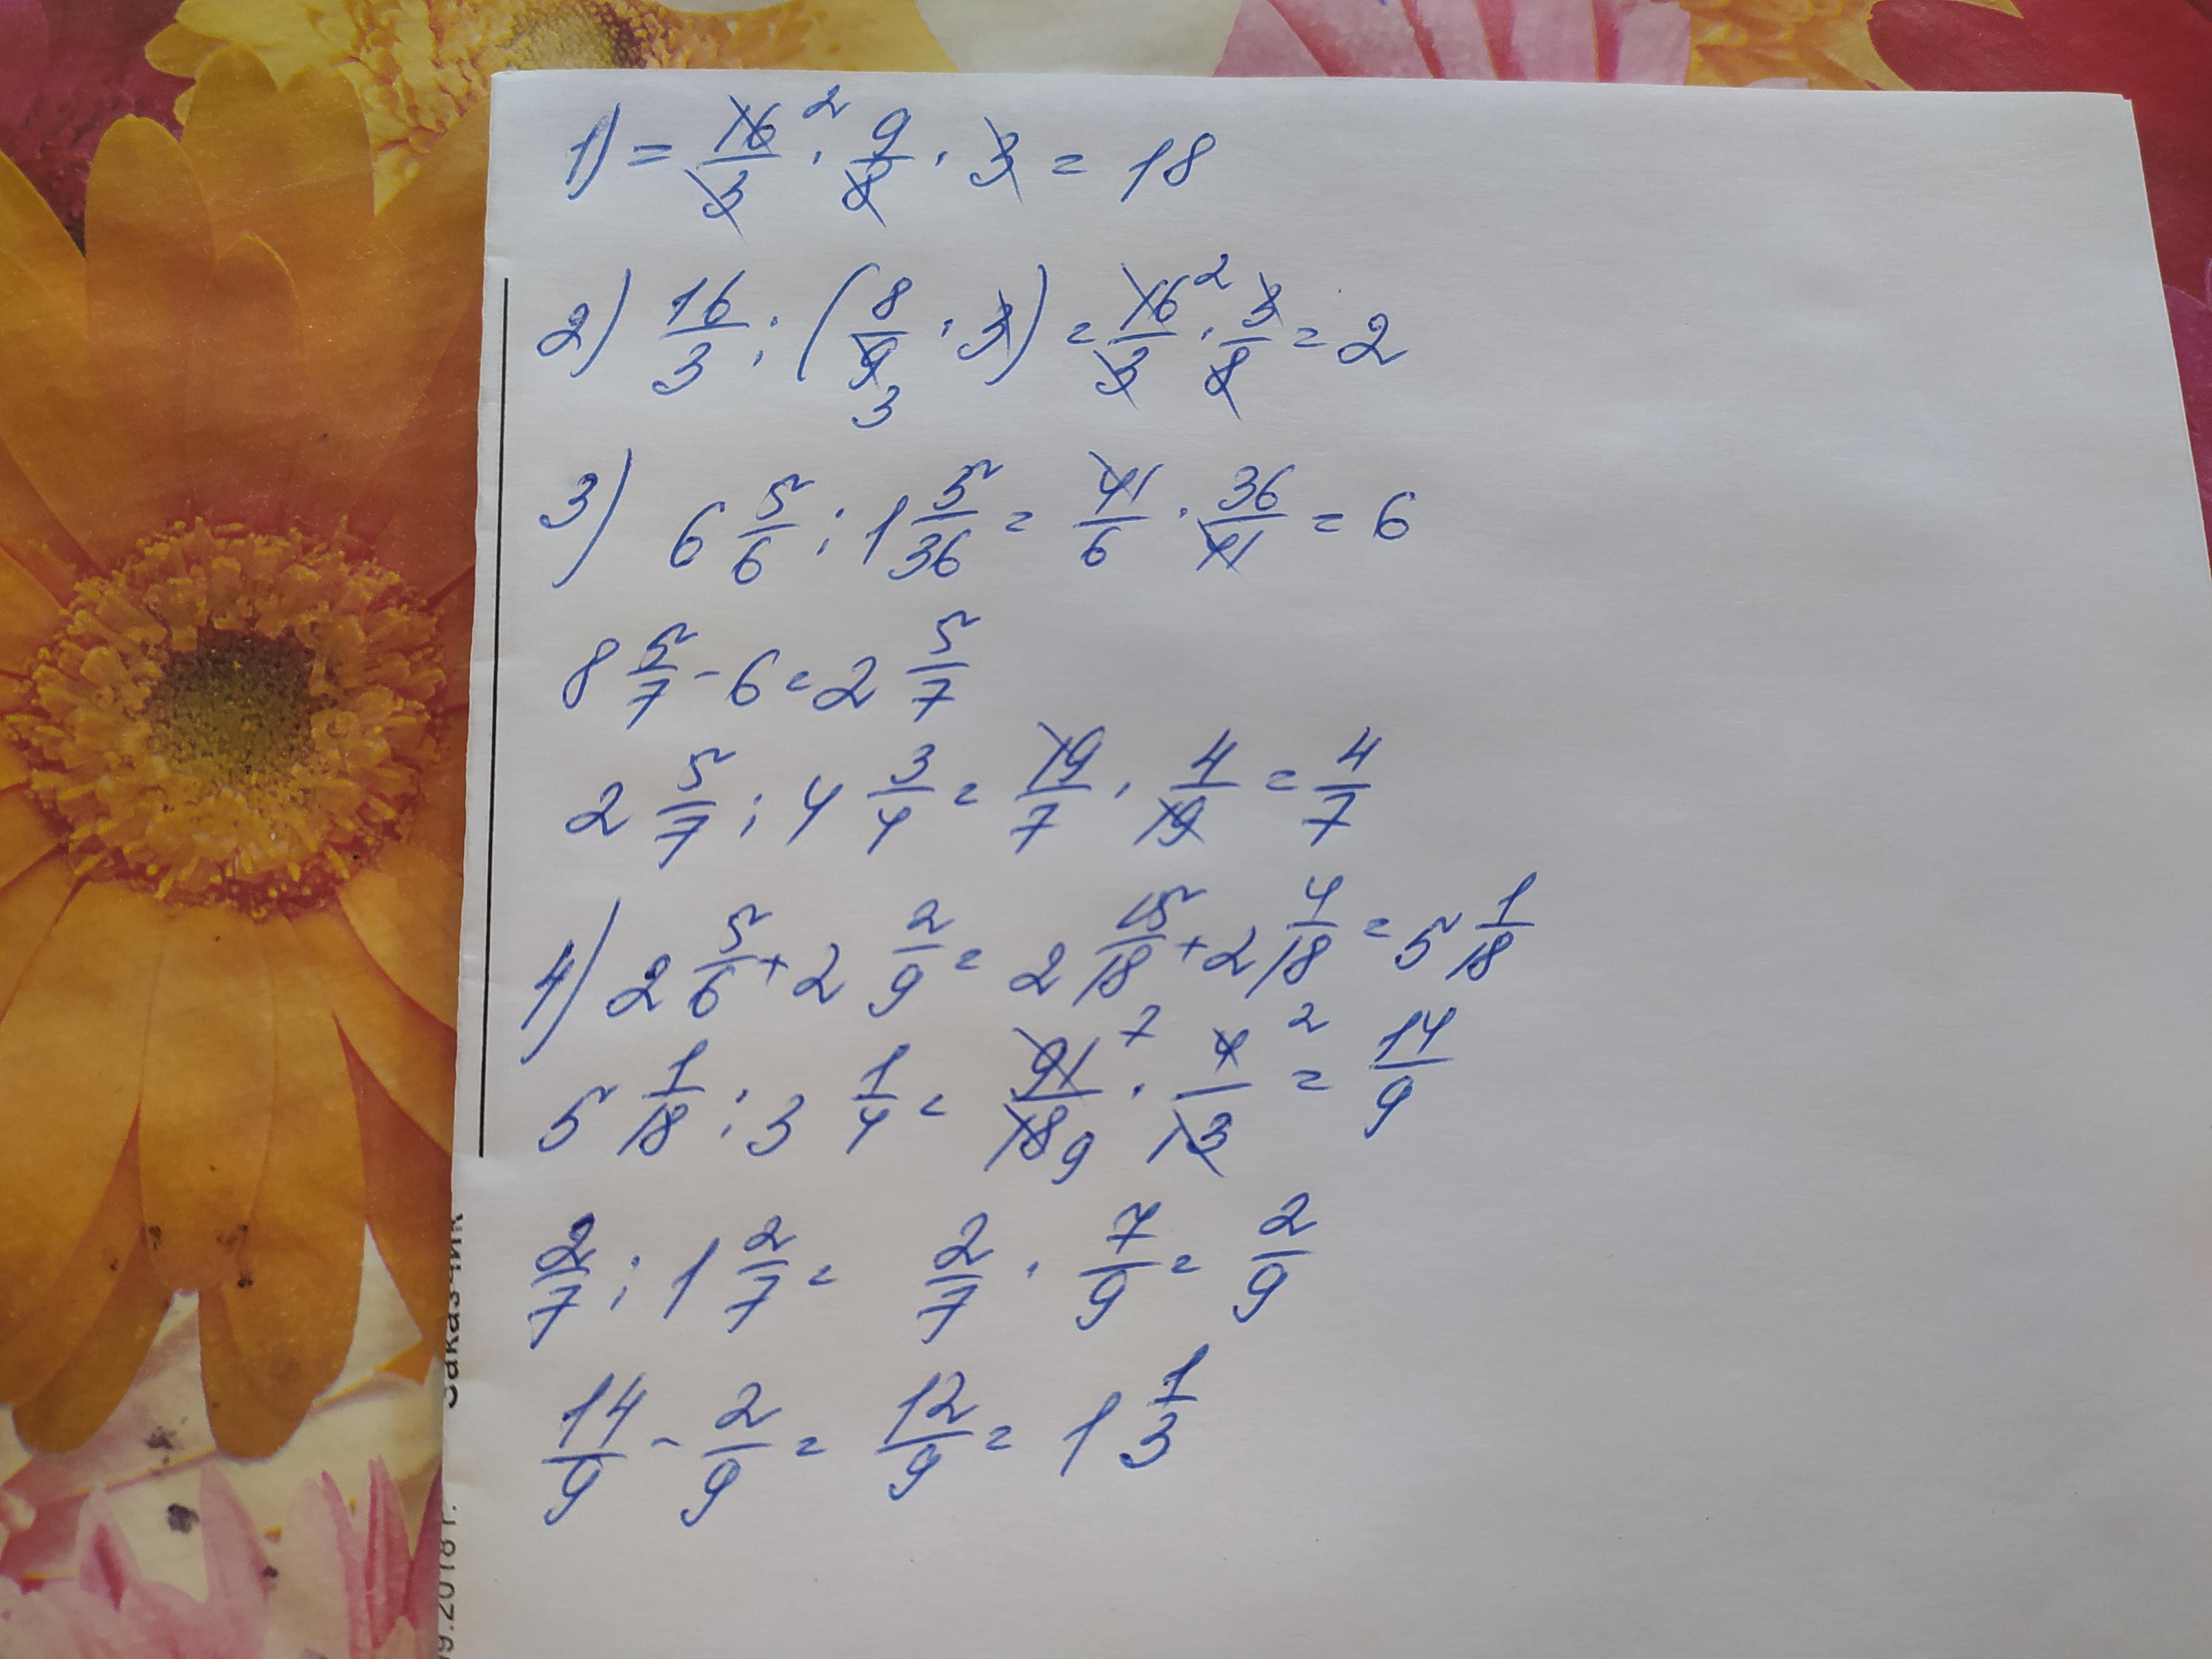 1) = 16/3 2 · 9/8 · 3 = 18
2) 16/3 : (8/9 3 · 3) = 16/3 2 · 3/8 = 2
3) 6 5/6 : 1 5/36 = 41/6 · 36/41 = 6
8 5/7 - 6 = 2 5/7
2 5/7 : 4 3/4 = 19/7 · 4/19 = 4/7
4) 2 5/6 + 2 2/9 = 2 15/18 + 2 4/18 = 5 1/18
5 1/18 : 3 1/4 = 91/18 7 9 · 4/13 2 = 14/9
2/7 : 1 2/7 = 2/7 · 7/9 = 2/9
14/9 - 2/9 = 12/9 = 1 1/3
Заказчик
09.2018 г.